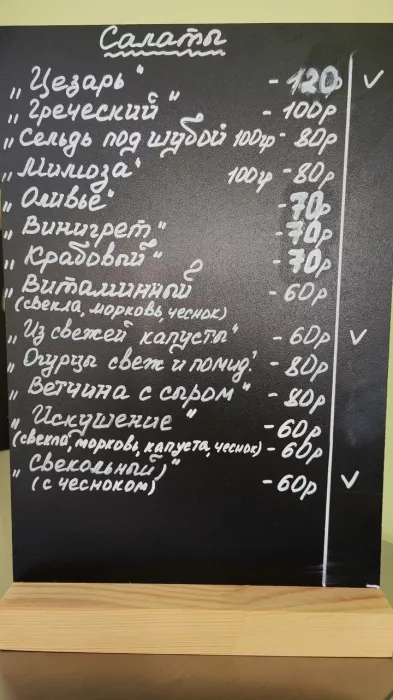 Салаты
„Цезарь" - 120р ✓
„Греческий" - 100р
„Сельдь под шубой 100гр - 80р
„Мимоза" 100гр - 80р
„Оливье" - 70р
„Винигрет" - 70р
„Крабовый" - 70р
„Витаминный - 60р
(свекла, морковь, чеснок)
„Из свежей капусты" - 60р ✓
„Огурцы свеж и помид." - 80р
„Ветчина с сыром" - 80р
„Искушение" - 60р
(свекла, морковь, капуста, чеснок) - 60р
„Свекольный" - 60р ✓
(с чесноком)